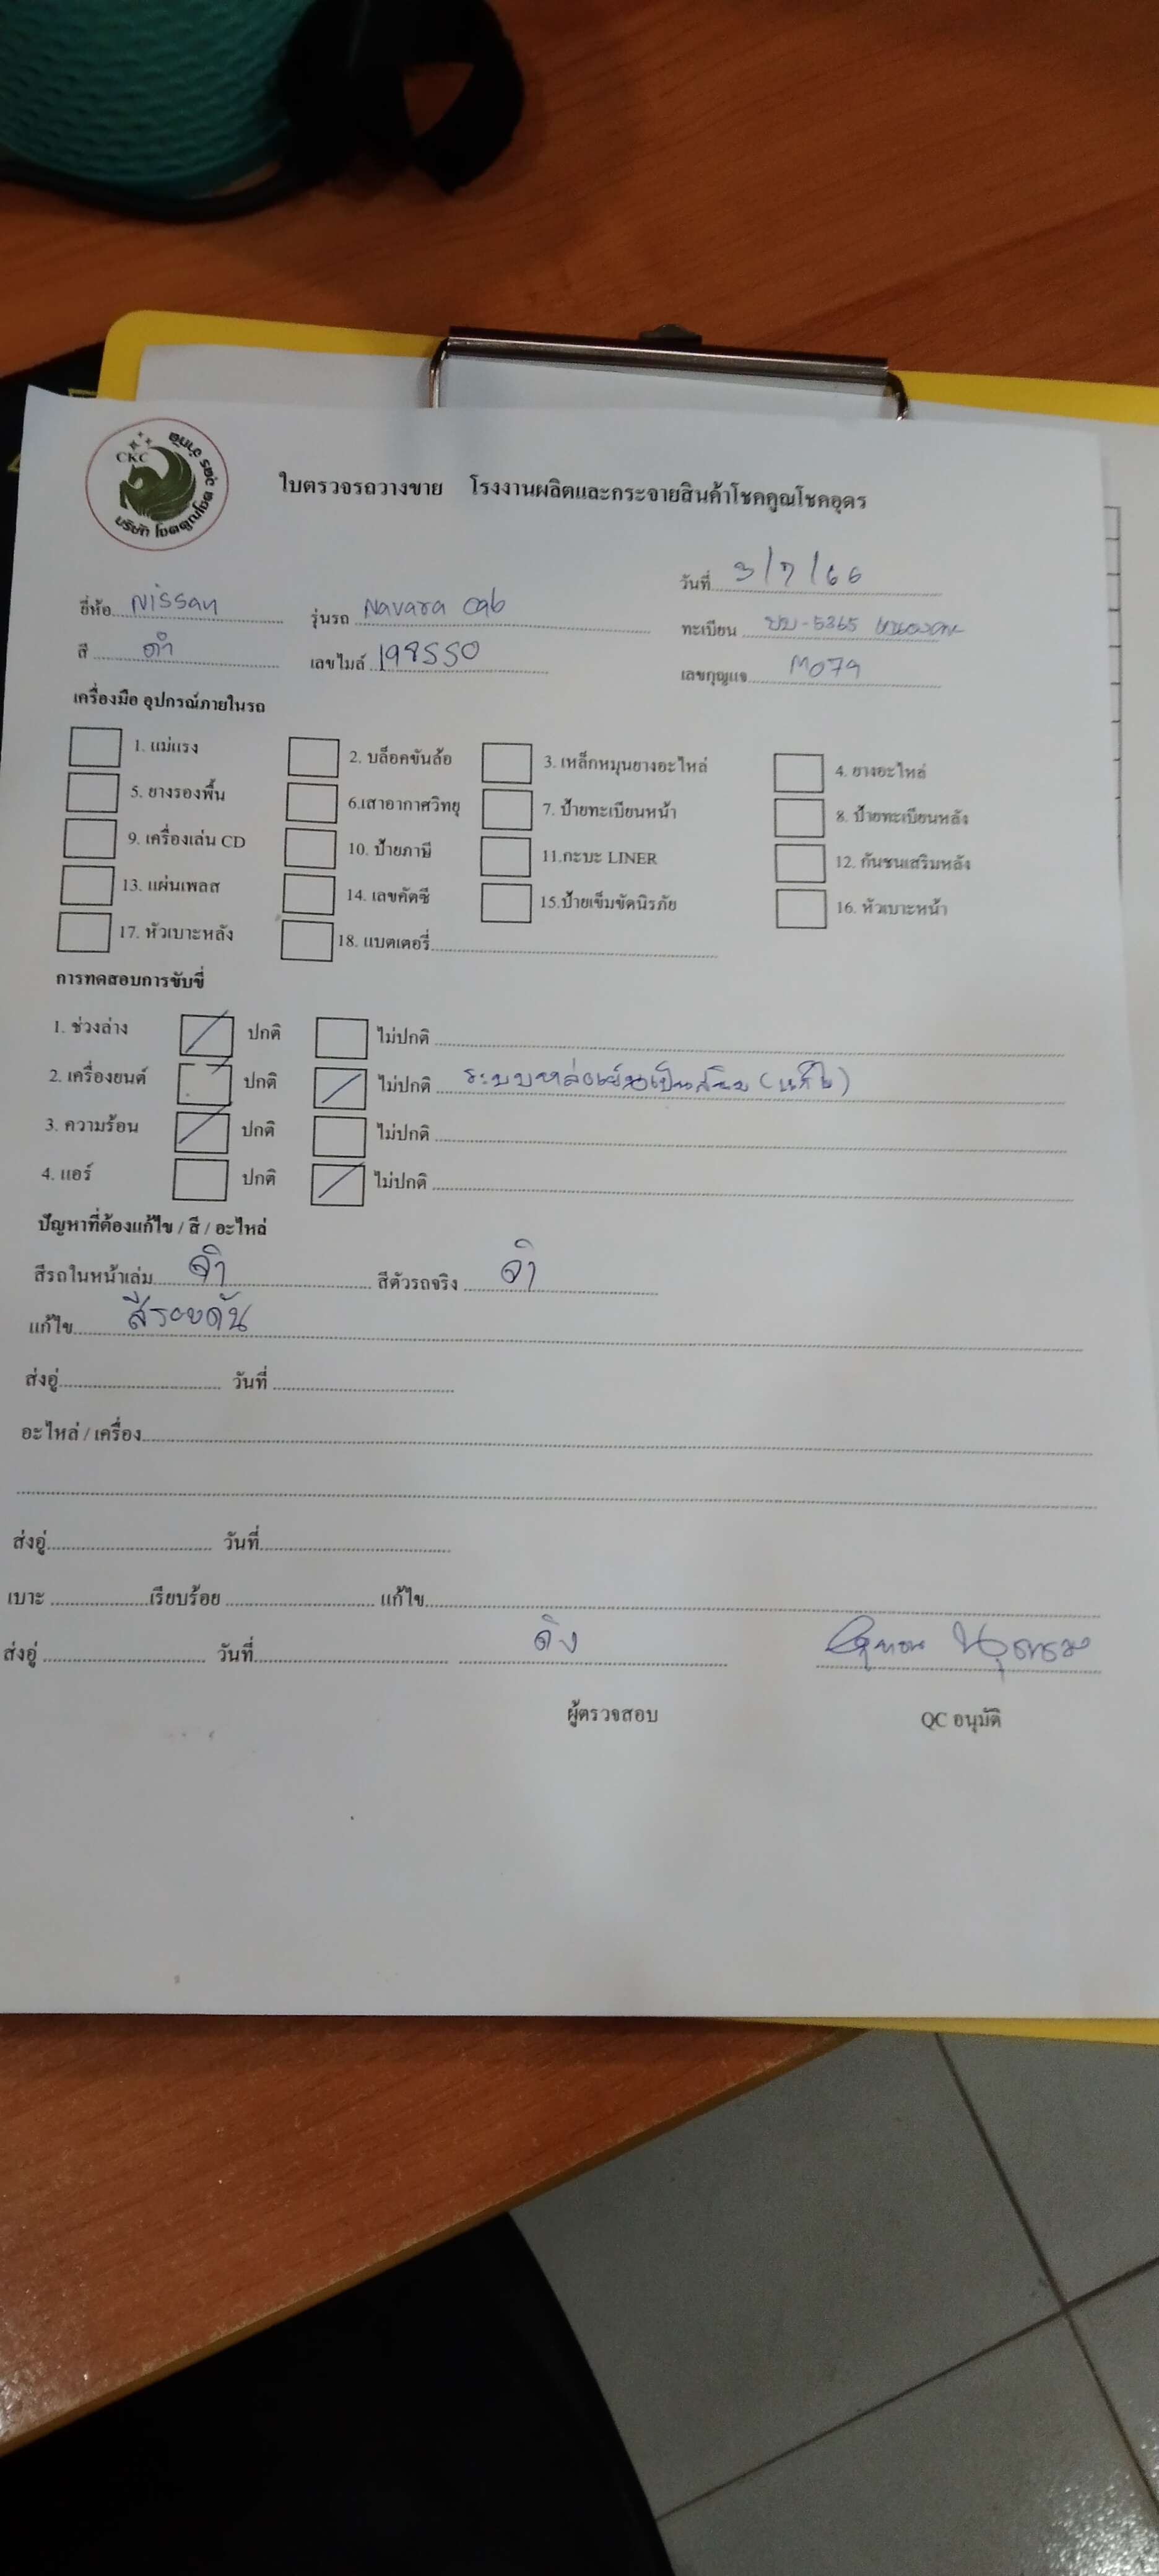 CKC
บริษัท โชคคูณโชค อุดร จำกัด
ใบตรวจรถวางขาย โรงงานผลิตและกระจายสินค้าโชคคูณโชคอุดร
วันที่ 3/7/66
ยี่ห้อ Nissan รุ่นรถ Navara cab ทะเบียน บบ-5365
สี ดำ เลขไมล์ 198550 เลขกุญแจ M079
เครื่องมือ อุปกรณ์ภายในรถ
1. แม่แรง 2. บล็อคขันล้อ 3. เหล็กหมุนยางอะไหล่ 4. ยางอะไหล่
5. ยางรองพื้น 6.เสาอากาศวิทยุ 7. ป้ายทะเบียนหน้า 8. ป้ายทะเบียนหลัง
9. เครื่องเล่น CD 10. ป้ายภาษี 11.กะบะ LINER 12. กันชนเสริมหลัง
13. แผ่นเพลส 14. เลขคัตซี 15.ป้ายเข็มขัดนิรภัย 16. หัวเบาะหน้า
17. หัวเบาะหลัง 18. แบตเตอรี่
การทดสอบการขับขี่
1. ช่วงล่าง / ปกติ ไม่ปกติ
2. เครื่องยนต์ ปกติ / ไม่ปกติ ระบบหล่อเย็นเป็นสนิม (แก้ไข)
3. ความร้อน / ปกติ ไม่ปกติ
4. แอร์ ปกติ / ไม่ปกติ
ปัญหาที่ต้องแก้ไข / สี / อะไหล่
สีรถในหน้าเล่ม ดำ สีตัวรถจริง ดำ
แก้ไข สีรอบคัน
ส่งอู่ วันที่
อะไหล่ / เครื่อง
ส่งอู่ วันที่
เบาะ เรียบร้อย แก้ไข
ส่งอู่ วันที่
ผู้ตรวจสอบ QC อนุมัติ